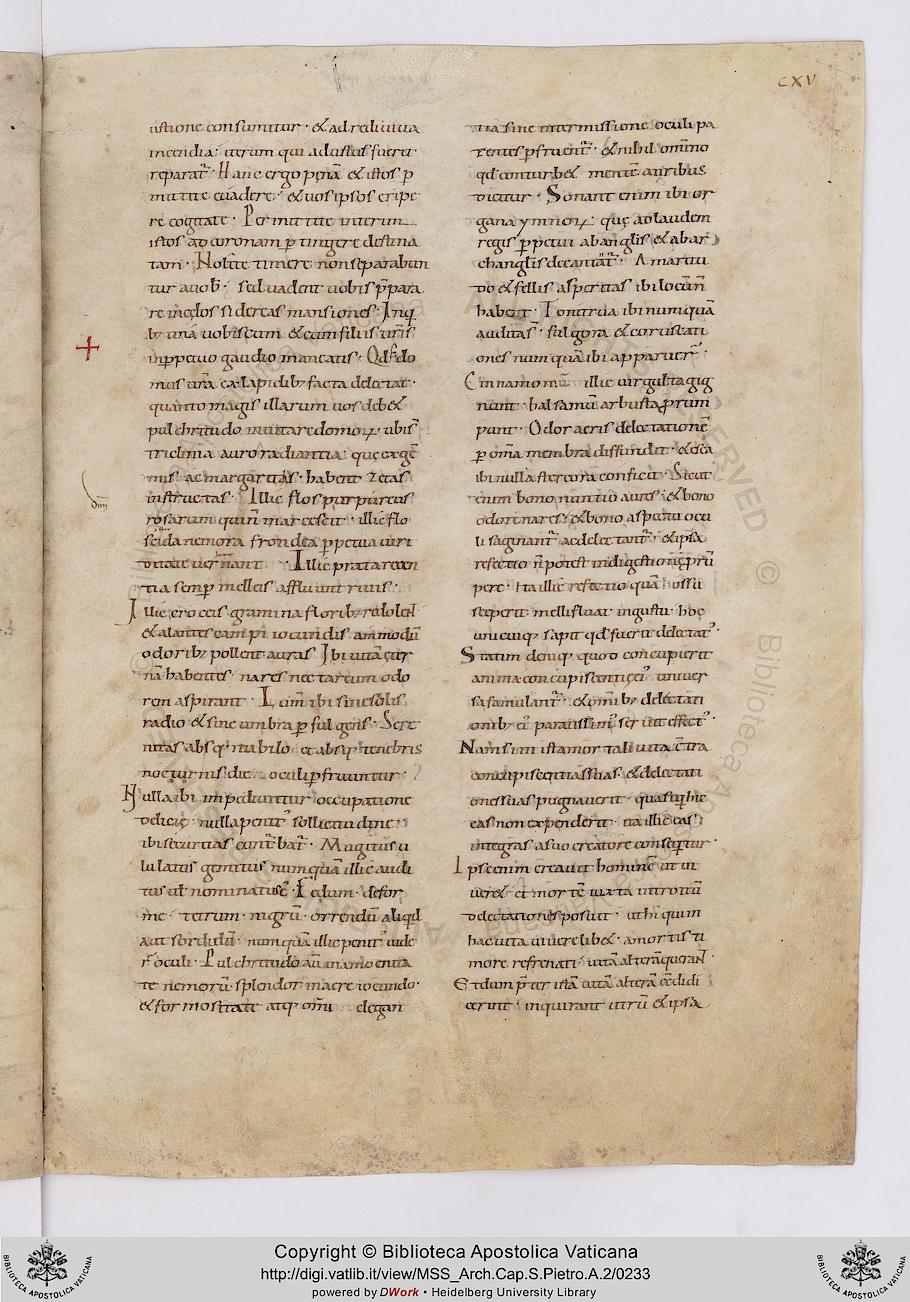 CXV
ustione consumitur · & ad rediviva
incendia · iterum qui adustus fuerit
reparat̄ · Hanc ergo penā & istos p
mittite evadere · & vos ipsos eripe
re cogitate · Permittite interim
istos ad coronam ptingere destina
tam · Nolite timere non separabun
tur a vob · sed vadent vobis p̄para
re in cęlos sidereas mansiones · In q
b; una vobiscum & cum filiis vr̄is
in ppetuo gaudio maneatis · Qd si do
mus vr̄a ex lapidib; facta delectat ·
quanto magis illarum vos deb&
pulchritudo invitare domoꝝ · ubi s
triclinia auro radiantia · que ex gē
mis ac margaritis · habent zetas
instructas · Illic flos purpureus
rosarum quin̄ marcescit · illic flo
scida nemora frondea ppetua viri
ditate vernant · Illic prata recen
tia semp melleis affluunt rivis ·
Illic croceis gramina florib; redolent
& alantes campi iocundis ammodū
odorib; pollent auras Ibi vitā ęter
nā habentes nares nectareum odo
rem aspirant · Lum̄ ibi sine solis
radio & sine umbra pfulgens · Sere
nitas absq; nubilo et absq; tenebris
nocturnis die oculi pfruuntur ·
Nulla ibi impediuntur occupatione
delicię · nulla penit sollicitudine
ibi securitas cont̄bat̄ · Mugitus u
lulatus gemitus numquā illic audi
tus ul nominatus ē · Fedum · defor
me · tetrum · nigrū · orrendū aliqd
aut sordidū · numquā illic penit vide
r̄ oculi · Pulchritudo aū in amoenita
te nemorū · splendor in aere iocundo ·
& formositate atq; om̄i elegan
tia sine intermissione oculi pa
rentes pfruent̄ · & nihil omnino
qd conturb& mente auribus
dicitur · Sonant enim ibi or
gana ymnoꝝ · quę ad laudem
regis ppetui ab anglis & ab ar
changlis decantāt̄ · Amaritu
do & fellis asperitas ibi locū n̄
habent · Tonitrua ibi numquā
auditas · fulgora & coruscati
ones numquā ibi apparuer̄ ·
Cinnamomū illic virgulta gig
nunt · balsamū arbusta prum
punt · Odor aeris delectationē
p om̄a membra diffundit · & esca
ibi nulla stercora conficit · Sicut
enim bono nuntio aures · & bono
odore nares · & bono aspectu ocu
li saginant̄ ac delectant̄ · & ipsa
refectio n̄ potest in digestionē prū
pere · Ita illic refectio quā
steperit · melliflua in gustu · hoc
unicuiq; sapit qd fuerit delectat ·
Statim deniq; quod concupierit
anima concupiscentię ei universa
sa famulant̄ · & om̄ib; delectati
onib; ei paratissim
Nam si in ista mortali vita cont̄ra
concupiscentias suas & delectati
ones suas pugnaverit · quas q; hic
eas non expenderit · ita illic eas
integras a suo creatore consequitur ·
Ipse enim creavit hominē ut vi
ver& · et mortē iuxta introitū
delectationis posuit · ut hi qui in
hac vita vivere lib& · a mortis ti
more refrenati · vitā alterā querant
Et dum p̄ter istā vitā alterā cedidi
cerint · inquirant utrū & ipsa